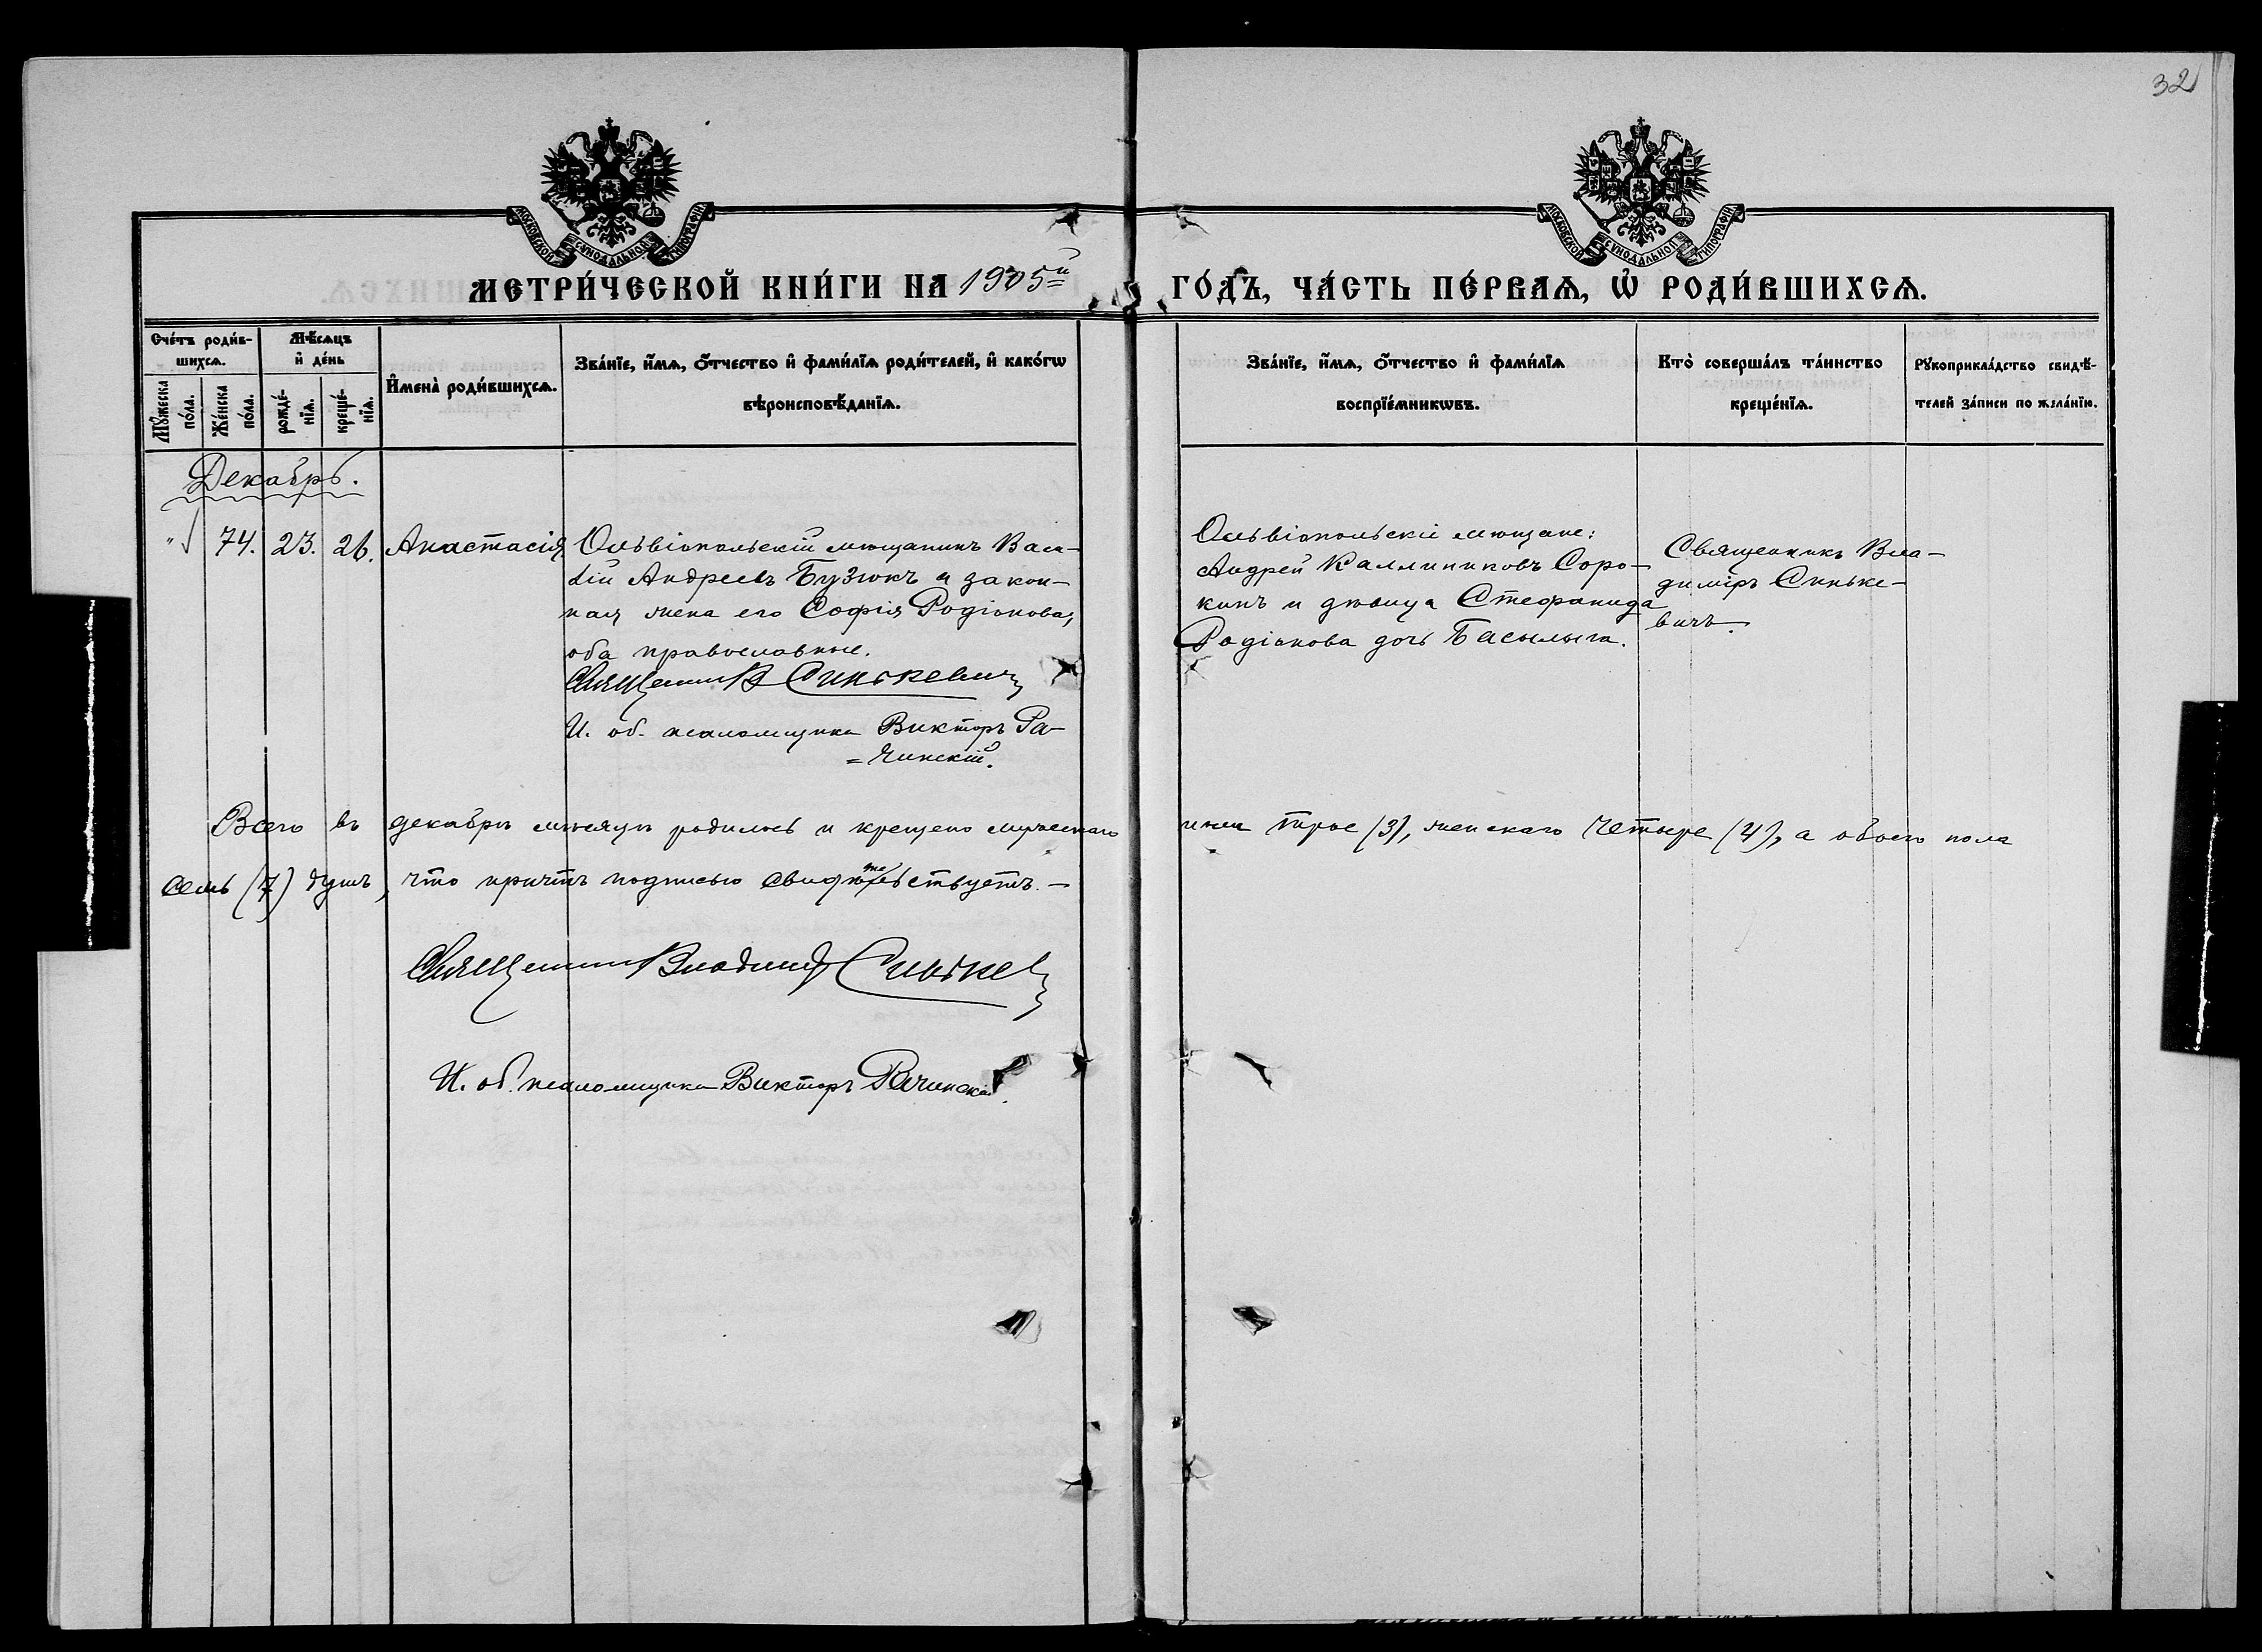 32
МОСКОВСКОЙ СѴНОДАЛЬНОЙ ТИПОГРАФІИ
МОСКОВСКОЙ СѴНОДАЛЬНОЙ ТИПОГРАФІИ
МЕТРИ́ЧЕСКОЙ КНИ́ГИ НА 1905й ГО́ДЪ, ЧА́СТЬ ПЕ́РВАѦ, Ѡ҆ РОДИ́ВШИХСѦ.
Сче́тъ роди́в-
шихсѧ.
Мꙋ́жеска
по́ла.
Же́нска
по́ла.
Мѣ́сѧцъ
и҆ де́нь
рожде́-
нїѧ.
креще́-
нїѧ.
И҆мена̀ роди́вшихсѧ.
Зва́нїе, и҆́мѧ, ѻ҆́тчество и҆ фами́лїѧ роди́телей, и҆ како́гѡ
вѣроисповѣ́данїѧ.
Зва́нїе, и҆́мѧ, ѻ҆́тчество и҆ фами́лїѧ
воспрїе́мникѡвъ.
Кто̀ соверша́лъ та́инство
креще́нїѧ.
Рꙋкоприкла́дство свидѣ́-
телей за́писи по жела́нїю.
Декабрь.
" 74. 23. 26. Анастасія
Ольвіопольскій мѣщанинъ Васи-
лій Андреевъ Бузюкъ и закон-
ная жена его Софія Родіонова,
оба православные.
Священникъ В Синькевичъ
И. об. псаломщика Викторъ Ра-
=чинскій.
Ольвіопольскіе мѣщане:
Андрей Каллиниковъ Соро-
кинъ и дѣвица Стефанида
Родіонова дочь Басылыга.
Священникъ Вла-
диміръ Синьке-
вичъ.
Всего въ декабрѣ мѣсяцѣ родилось и крещено мужескаго пола трое (3), женскаго четыре (4), а обоего пола
семь (7) душъ, что причтъ подписью свидѣтельствуетъ.—
Священникъ Владиміръ Синькевичъ
И. об. псаломщика Викторъ Рачинскій.